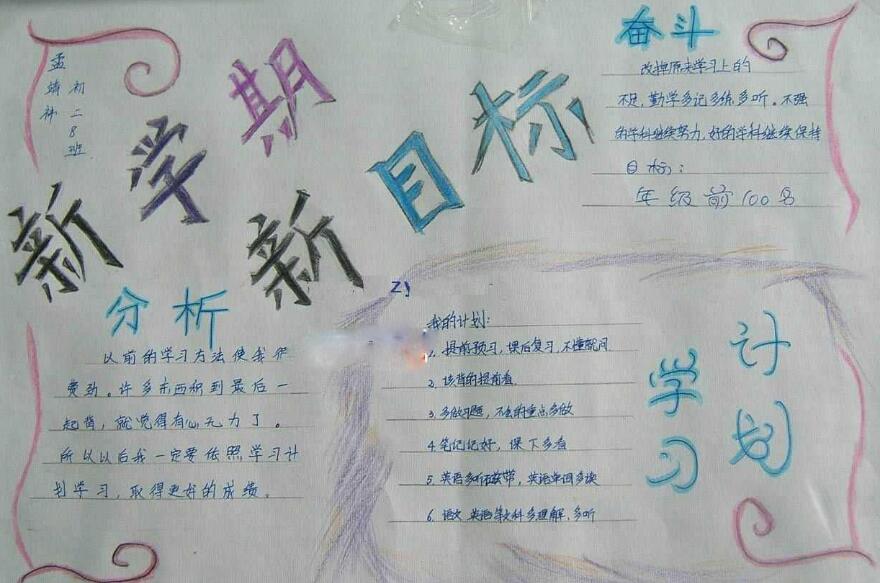 新学期 新目标
孟靖
初二8班
奋斗
改掉原来学习上的
不足,勤学多记多练多听。不强
的学科继续努力,好的学科继续保持
目标:
年级前100名
分析
以前的学习方法使我很
费劲。许多东西积到最后一
起背,就觉得有心无力了。
所以以后我一定要依照学习计
划学习,取得更好的成绩。
我的计划:
1. 提前预习,课后复习,不懂就问
2. 该背的提前看
3. 多做习题,不会的重点多做
4. 笔记记好,课下多看
5. 英语多听磁带,英语单词多读
6. 语文 英语等文科多理解,多听
学习
计划